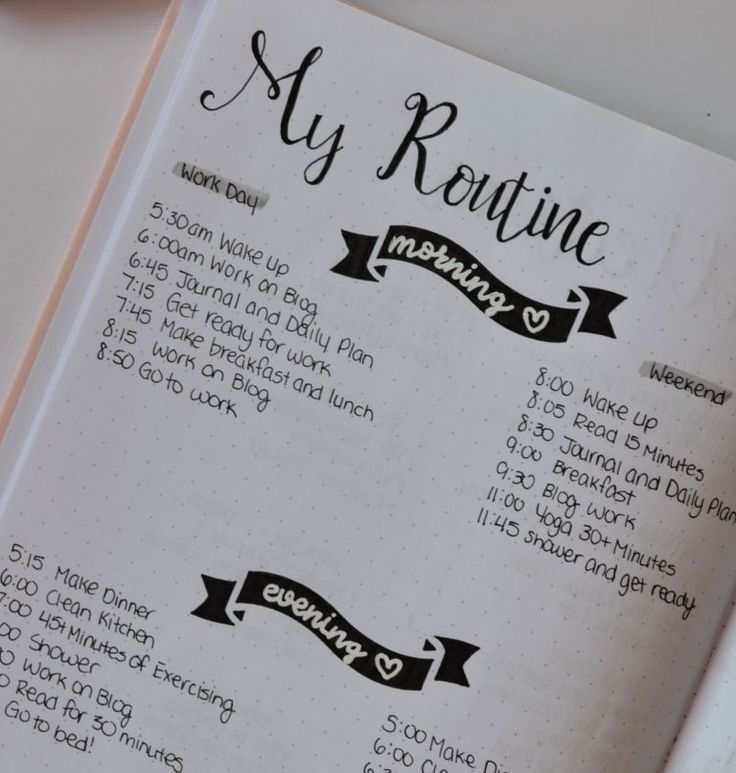 My Routine
Work Day
morning
5:30am Wake Up
6:00am Work on Blog
6:45 Journal and Daily Plan
7:15 Get ready for work
7:45 Make breakfast and lunch
8:15 Work on Blog
8:50 Go to work
Weekend
8:00 Wake Up
8:05 Read 15 Minutes
8:30 Journal and Daily Plan
9:00 Breakfast
9:30 Blog Work
11:00 Yoga 30+ Minutes
11:45 shower and get ready
evening
5:15 Make Dinner
6:00 Clean Kitchen
7:00 45+ Minutes of Exercising
Shower
Work on Blog
Read for 30 minutes
Go to bed!
5:00 Make
6:00